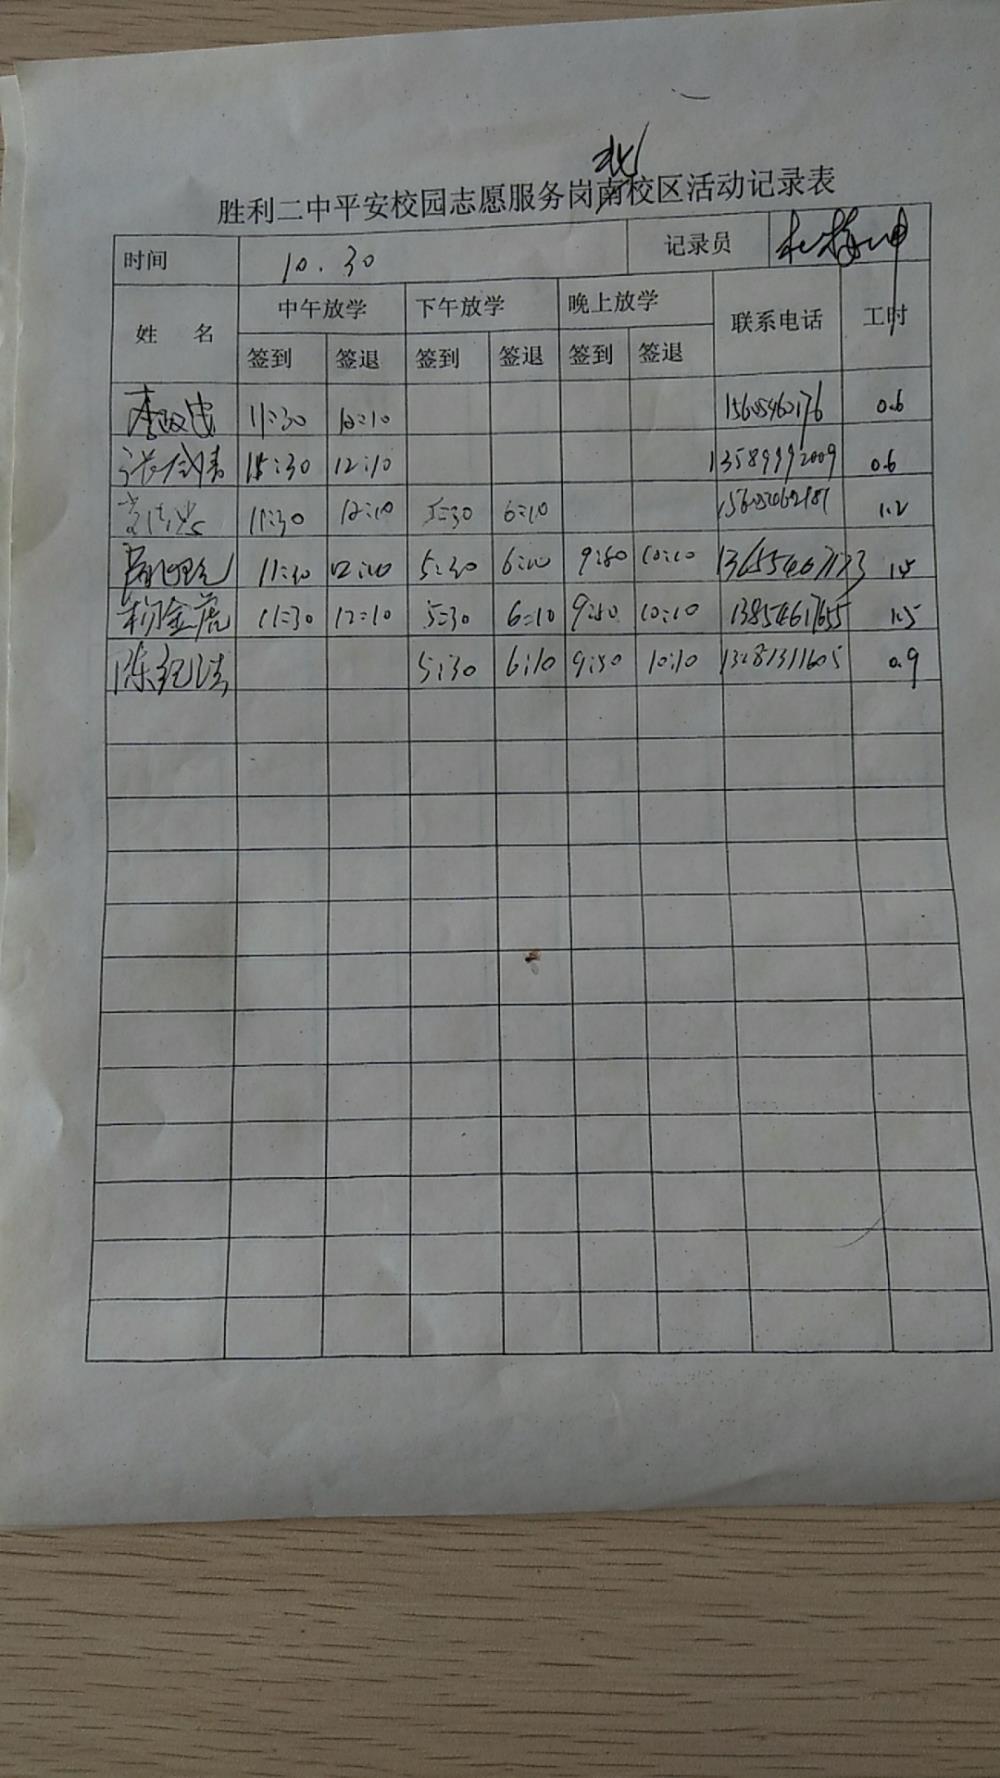 北
胜利二中平安校园志愿服务岗南校区活动记录表
时间 10.30 记录员
姓 名 中午放学 下午放学 晚上放学 联系电话 工时
签到 签退 签到 签退 签到 签退
11:30 12:10 15605460176 0.6
15:30 12:10 13589992009 0.6
11:30 12:10 5:30 6:10 1.2
11:30 12:10 5:30 6:10 9:50 10:10 1.5
杨金虎 11:30 12:10 5:30 6:10 9:50 10:10 13854617655 1.5
陈纪法 5:30 6:10 9:50 10:10 13281311605 0.9